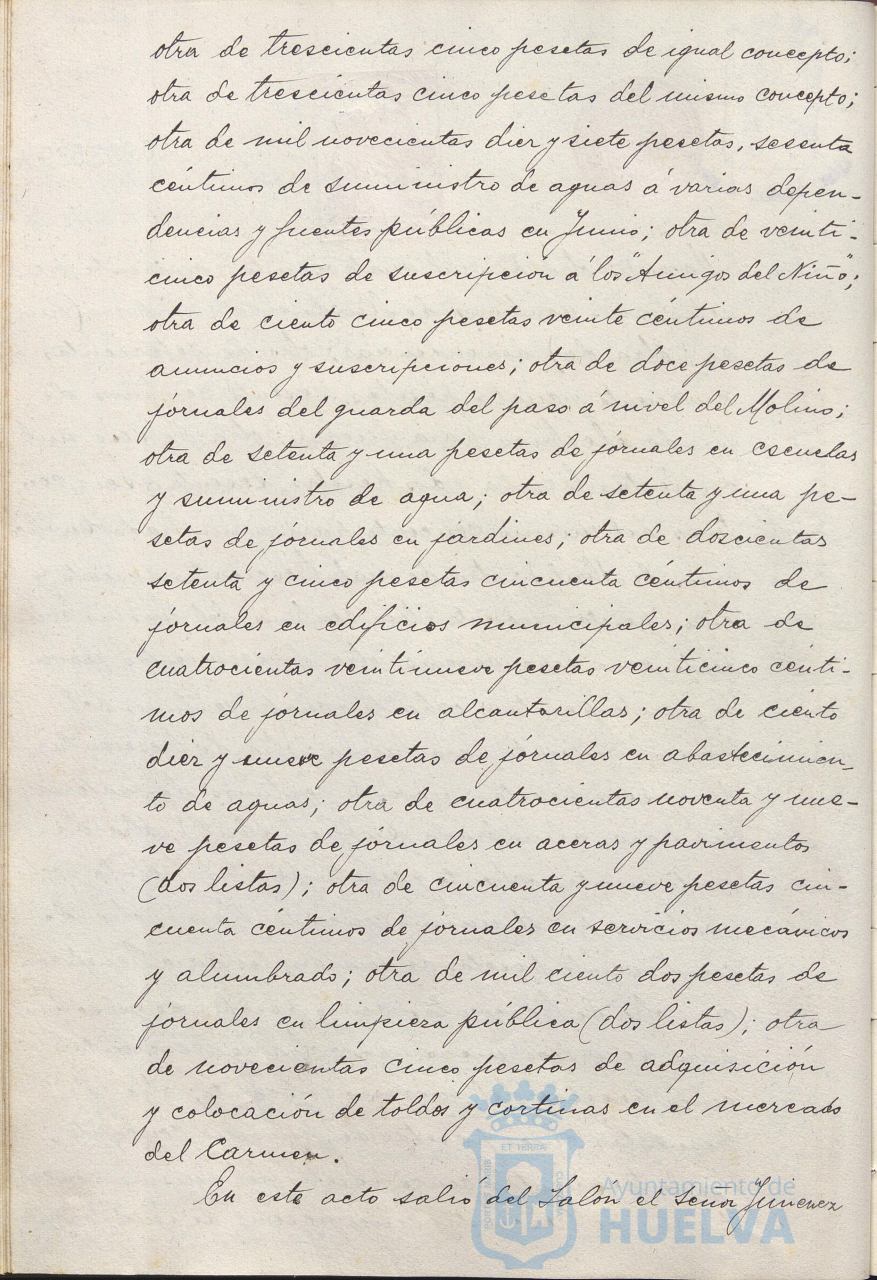 otra de trescientas cinco pesetas de igual concepto;
otra de trescientas cinco pesetas del mismo concepto;
otra de mil novecientas diez y siete pesetas, sesenta
céntimos de suministro de aguas á varias depen-
dencias y fuentes públicas en Junio; otra de veinti-
cinco pesetas de suscripción á los "Amigos del Niño";
otra de ciento cinco pesetas veinte céntimos de
anuncios y suscripciones; otra de doce pesetas de
jornales del guarda del paso á nivel del Molino;
otra de setenta y una pesetas de jornales en escuelas
y suministro de agua; otra de setenta y una pe-
setas de jornales en jardines; otra de doscientas
setenta y cinco pesetas cincuenta céntimos de
jornales en edificios municipales; otra de
cuatrocientas veintinueve pesetas veinticinco cénti-
mos de jornales en alcantarillas; otra de ciento
diez y nueve pesetas de jornales en abastecimien-
to de aguas; otra de cuatrocientas noventa y nue-
ve pesetas de jornales en aceras y pavimentos
(dos listas); otra de cincuenta y nueve pesetas cin-
cuenta céntimos de jornales en servicios mecánicos
y alumbrado; otra de mil ciento dos pesetas de
jornales en limpieza pública (dos listas); otra
de novecientas cinco pesetas de adquisición
y colocación de toldos y cortinas en el mercado
del Carmen.
En este acto salió del Salón el Señor Jimenez
ET TERRA
Ayuntamiento de
HUELVA